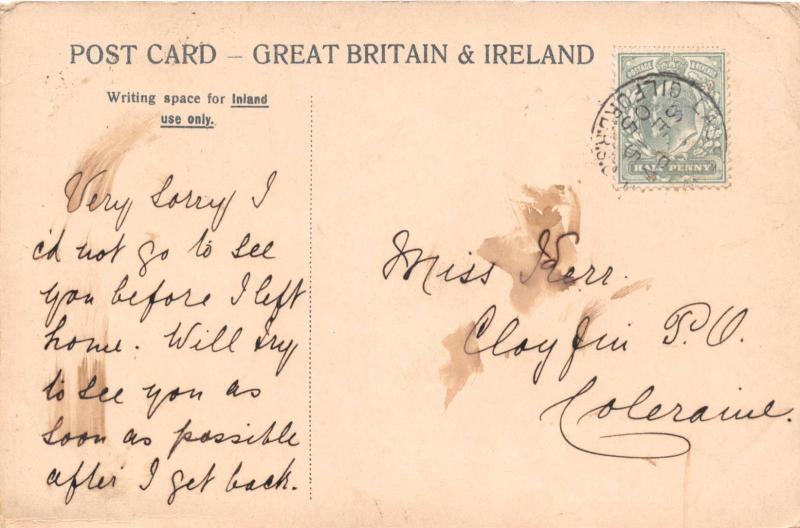 POST CARD – GREAT BRITAIN & IRELAND
Writing space for Inland
use only.
Very sorry I
c'd not go to see
you before I left
home. Will try
to see you as
soon as possible
after I get back.
HALF PENNY
Miss Kerr.
Cloyfin P.O.
Coleraine.